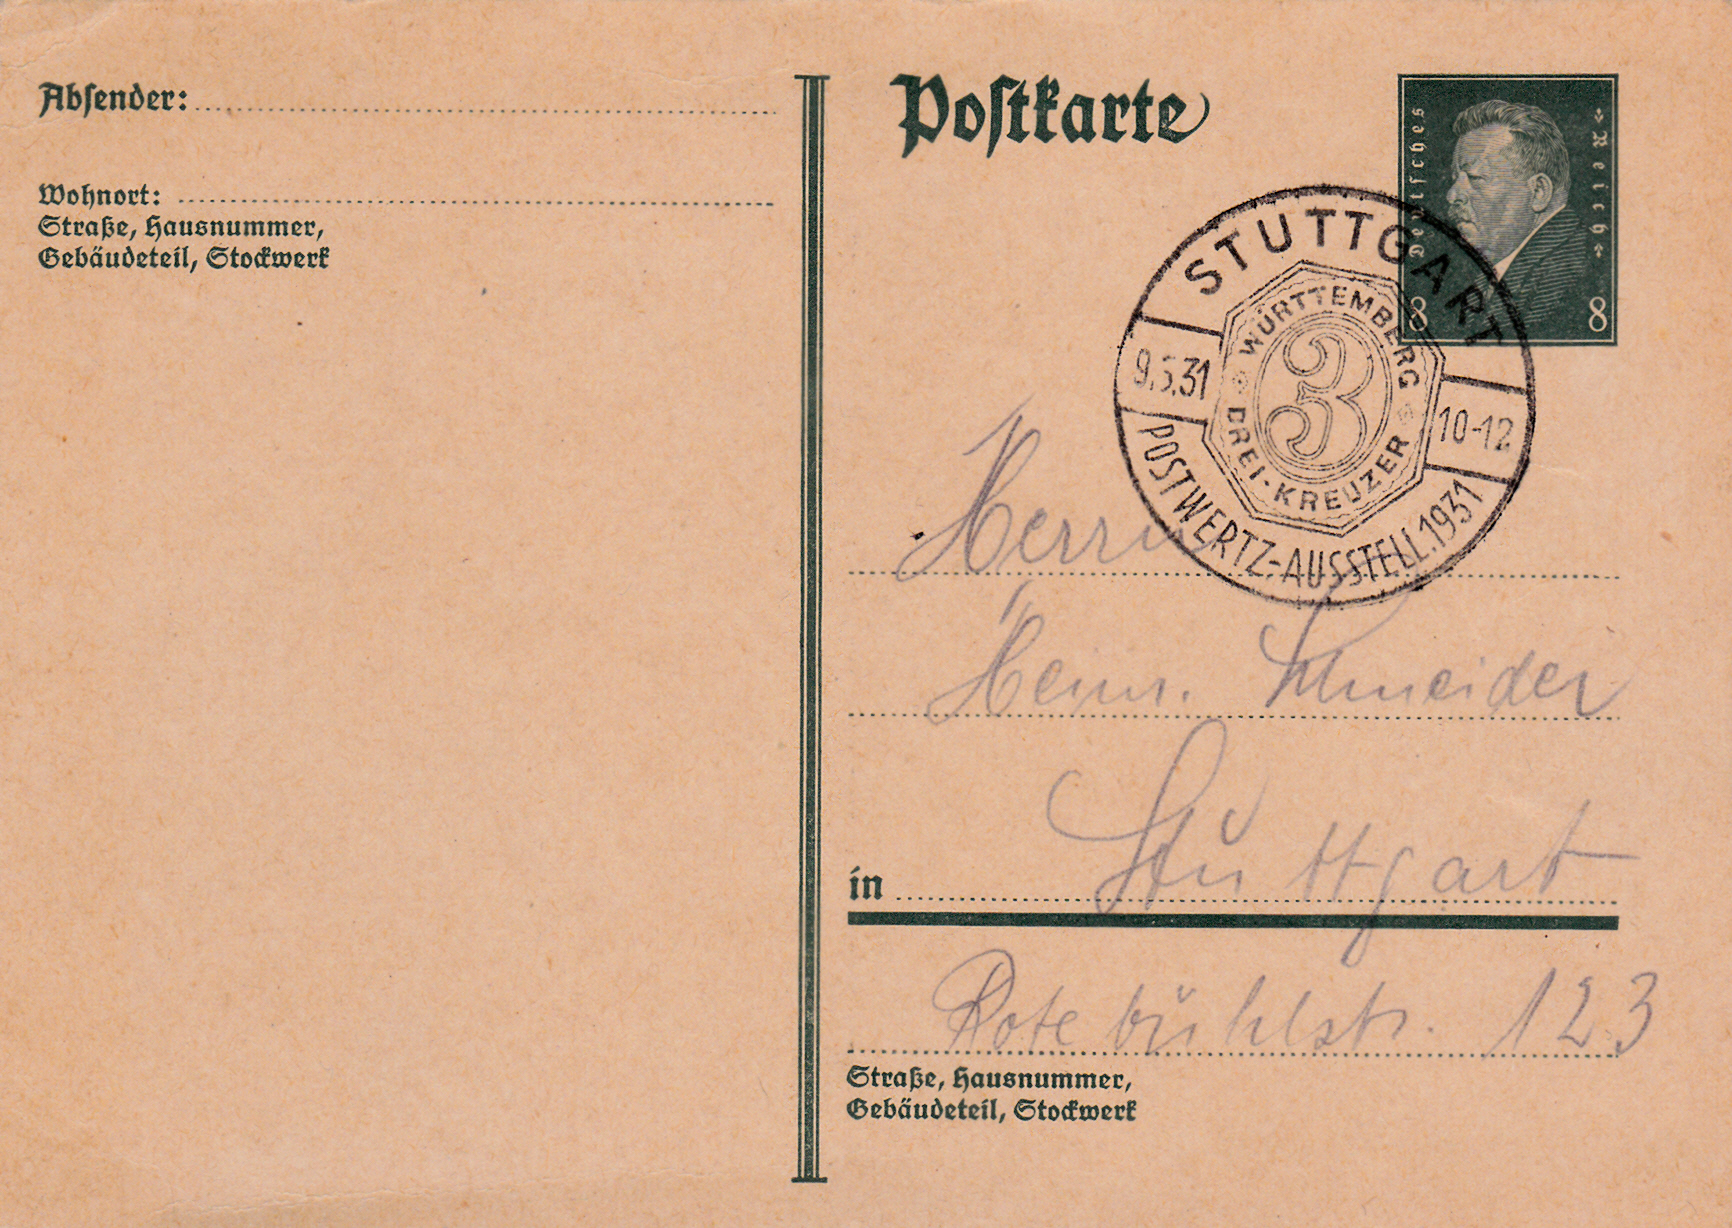 Absender:
Wohnort:
Straße, Hausnummer,
Gebäudeteil, Stockwerk
Postkarte
Deutsches Reich
8 8
STUTTGART
WÜRTTEMBERG
3
DREI-KREUZER
9.5.31
10-12
POSTWERTZ-AUSSTELL.1931
Herrn
Heinr. Schneider
in Stuttgart
Rotebühlstr. 123
Straße, Hausnummer,
Gebäudeteil, Stockwerk